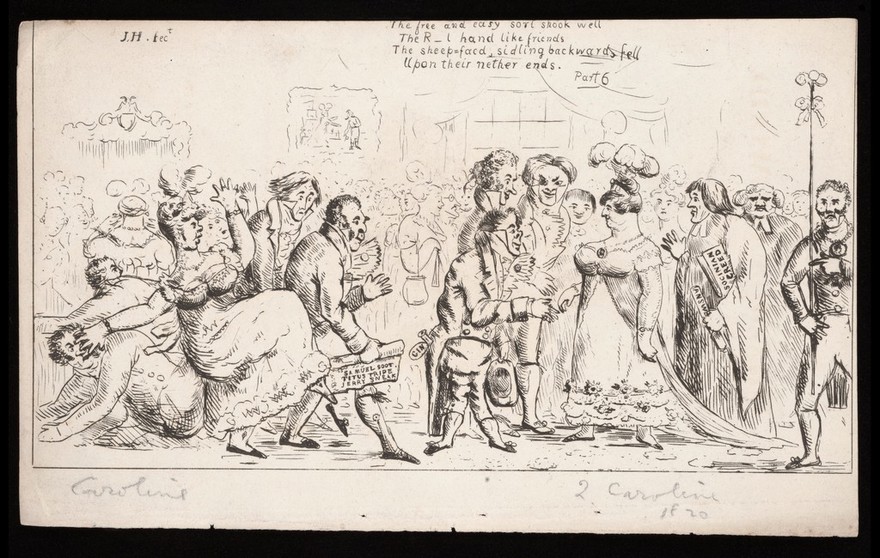 J.H. fec^t
The free and easy sort shook well
The R_l hand like friends
The sheep=facd, sidling backwards fell
Upon their nether ends.
Part 6
SOCINIAN
CREED
SAMUEL SOOT
TITUS TRIPE
JERRY SNEAK
Caroline
Q. Caroline
1820